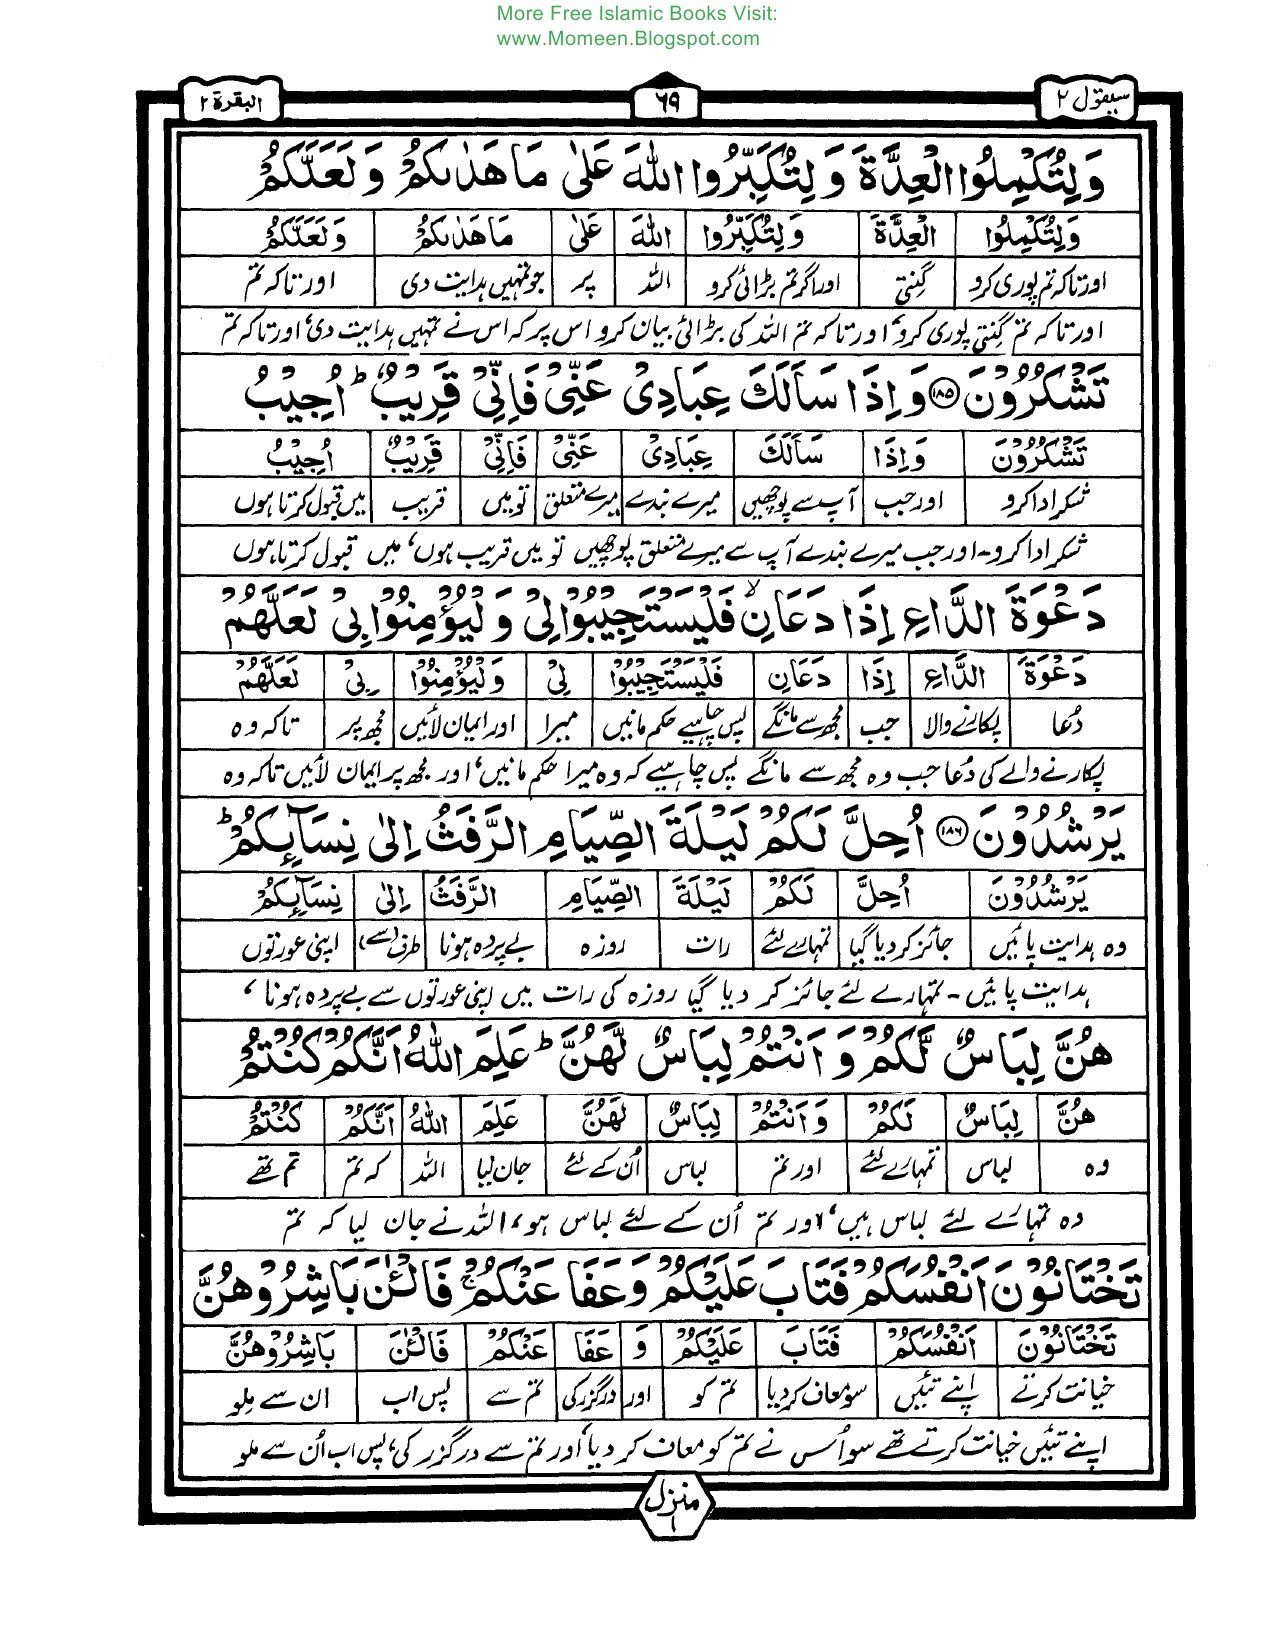 More Free Islamic Books Visit:
www.Momeen.Blogspot.com
سيقول ۲ ۶۹ البقرة ۲
وَلِتُكْمِلُوا الْعِدَّةَ وَلِتُكَبِّرُوا اللّٰهَ عَلٰى مَا هَدٰىكُمْ وَلَعَلَّكُمْ
وَلِتُكْمِلُوا الْعِدَّةَ وَلِتُكَبِّرُوا اللّٰهَ عَلٰى مَا هَدٰىكُمْ وَلَعَلَّكُمْ
اور تاکہ تم پوری کرو گنتی اور اگر تم بڑائی کرو اللہ پر جو تمہیں ہدایت دی اور تاکہ تم
اور تاکہ تم گنتی پوری کرو، اور تاکہ تم اللہ کی بڑائی بیان کرو اس پر کہ اس نے تمہیں ہدایت دی، اور تاکہ تم
تَشْكُرُوْنَ ۱۸۵ وَاِذَا سَاَلَكَ عِبَادِيْ عَنِّيْ فَاِنِّيْ قَرِيْبٌ ؕ اُجِيْبُ
تَشْكُرُوْنَ وَاِذَا سَاَلَكَ عِبَادِيْ عَنِّيْ فَاِنِّيْ قَرِيْبٌ اُجِيْبُ
شکر ادا کرو اور جب آپ سے پوچھیں میرے بندے میرے متعلق تو میں قریب میں قبول کرتا ہوں
شکر ادا کرو۔ اور جب میرے بندے آپ سے میرے متعلق پوچھیں تو میں قریب ہوں، میں قبول کرتا ہوں
دَعْوَةَ الدَّاعِ اِذَا دَعَانِ ۙ فَلْيَسْتَجِيْبُوْا لِيْ وَلْيُؤْمِنُوْا بِيْ لَعَلَّهُمْ
دَعْوَةَ الدَّاعِ اِذَا دَعَانِ فَلْيَسْتَجِيْبُوْا لِيْ وَلْيُؤْمِنُوْا بِيْ لَعَلَّهُمْ
دُعا پکارنے والا جب مجھ سے مانگے پس چاہیے حکم مانیں میرا اور ایمان لائیں مجھ پر تاکہ وہ
پکارنے والے کی دُعا جب وہ مجھ سے مانگے پس چاہیے کہ وہ میرا حکم مانیں، اور مجھ پر ایمان لائیں تاکہ وہ
يَرْشُدُوْنَ ۱۸۶ اُحِلَّ لَكُمْ لَيْلَةَ الصِّيَامِ الرَّفَثُ اِلٰى نِسَآئِكُمْ ؕ
يَرْشُدُوْنَ اُحِلَّ لَكُمْ لَيْلَةَ الصِّيَامِ الرَّفَثُ اِلٰى نِسَآئِكُمْ
وہ ہدایت پائیں جائز کر دیا گیا تمہارے لئے رات روزہ بے پردہ ہونا طرف (سے) اپنی عورتوں
ہدایت پائیں۔ تمہارے لئے جائز کر دیا گیا روزہ کی رات میں اپنی عورتوں سے بے پردہ ہونا،
هُنَّ لِبَاسٌ لَّكُمْ وَاَنْتُمْ لِبَاسٌ لَّهُنَّ ؕ عَلِمَ اللّٰهُ اَنَّكُمْ كُنْتُمْ
هُنَّ لِبَاسٌ لَكُمْ وَاَنْتُمْ لِبَاسٌ لَهُنَّ عَلِمَ اللّٰهُ اَنَّكُمْ كُنْتُمْ
وہ لباس تمہارے لئے اور تم لباس اُن کے لئے جان لیا اللہ کہ تم تم تھے
وہ تمہارے لئے لباس ہیں، اور تم اُن کے لئے لباس ہو، اللہ نے جان لیا کہ تم
تَخْتَانُوْنَ اَنْفُسَكُمْ فَتَابَ عَلَيْكُمْ وَعَفَا عَنْكُمْ ۚ فَالْـٰٔنَ بَاشِرُوْهُنَّ
تَخْتَانُوْنَ اَنْفُسَكُمْ فَتَابَ عَلَيْكُمْ وَ عَفَا عَنْكُمْ فَالْـٰٔنَ بَاشِرُوْهُنَّ
خیانت کرتے اپنے تئیں سو معاف کر دیا تم کو اور درگزر کی تم سے پس اب ان سے ملو
اپنے تئیں خیانت کرتے تھے سو اُس نے تم کو معاف کر دیا، اور تم سے درگزر کی، پس اب اُن سے ملو
منزل ۱